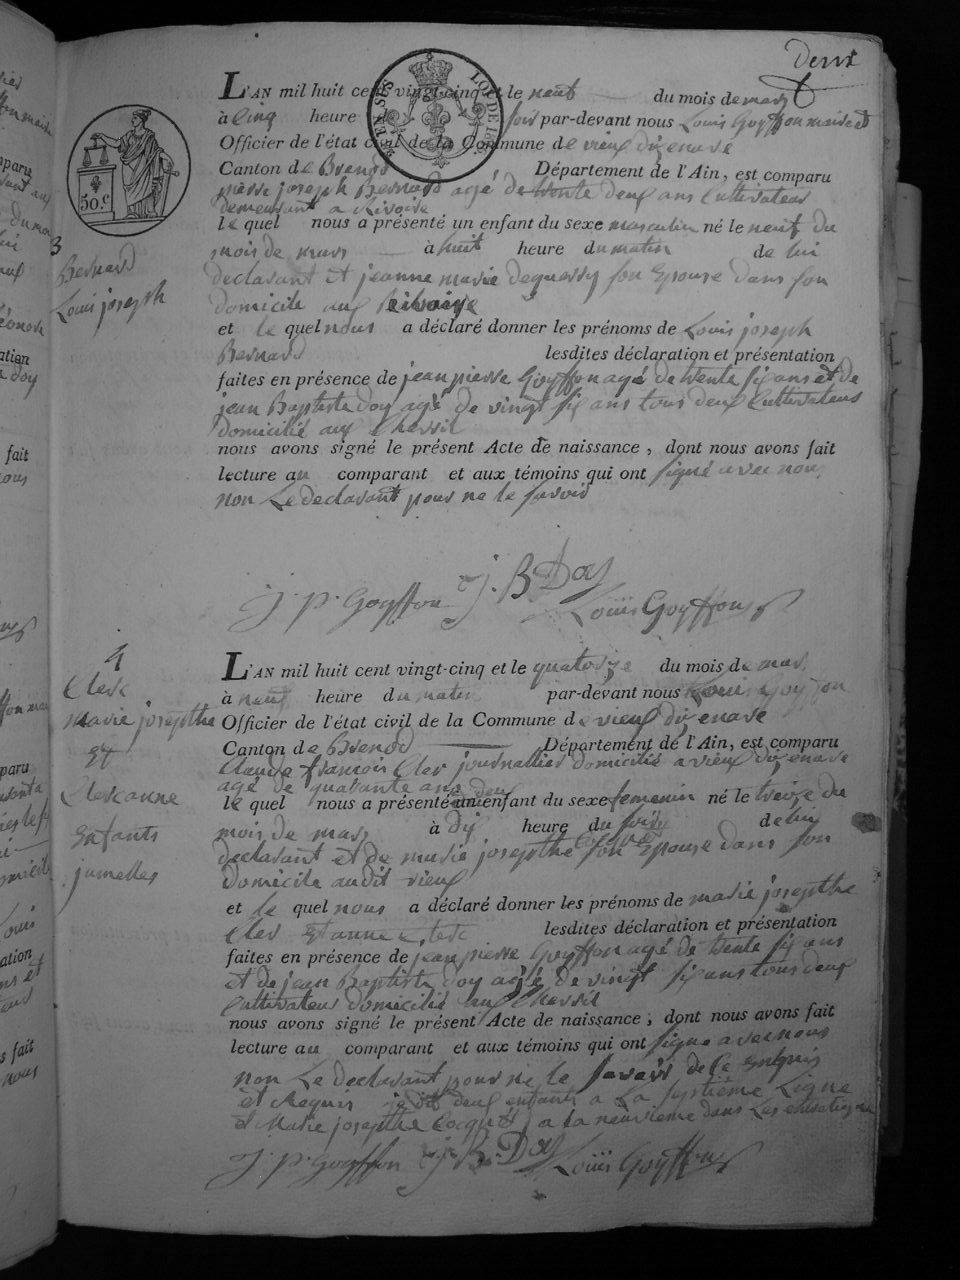 deux
L'AN mil huit cent vingt-cinq et le neuf du mois de mars
à Cinq heure soir par-devant nous Louis Goyffon maire et
Officier de l'état civil de la Commune de vieux dizenave
Canton de Brenod Département de l'Ain, est comparu
pierre joseph Bernard agé de trente deux ans Cultivateur
demeurant a
le quel nous a présenté un enfant du sexe masculin né le neuf du
mois de mars à huit heure du matin de lui
declarant et jeanne marie son Epouse dans son
domicile aux
et le quel nous a déclaré donner les prénoms de Louis joseph
Bernard lesdites déclaration et présentation
faites en présence de jean pierre Goyffon agé de trente six ans et de
jean Baptiste doy agé de vingt six ans tous deux Cultivateurs
domicilié aux
nous avons signé le présent Acte de naissance, dont nous avons fait
lecture au comparant et aux témoins qui ont signé avec nous
non Le declarant pour ne le savoir
J. P. Goyffon J. B. Doy
Louis Goyffon
50.c
3
Bernard
Louis joseph
4
Clerc
marie josepthe
Et
Clerc anne
Enfants
jumelles
L'AN mil huit cent vingt-cinq et le quatorze du mois de mars
à neuf heure du matin par-devant nous Louis Goyffon
Officier de l'état civil de la Commune de vieux dizenave
Canton de Brenod Département de l'Ain, est comparu
Claude francois Clerc journallier domicilié a vieux dizenave
agé de quarante ans
le quel nous a présenté deux enfant du sexe femenin né le treize du
mois de mars à dix heure du soir de lui
declarant et de marie josepthe son Epouse dans son
domicile audit vieux
et le quel nous a déclaré donner les prénoms de marie josepthe
Clerc Et anne Clerc lesdites déclaration et présentation
faites en présence de jean pierre Goyffon agé de trente six ans
et de jean Baptiste doy agé de vingt six ans tous deux
Cultivateurs domicilié aux
nous avons signé le présent Acte de naissance, dont nous avons fait
lecture au comparant et aux témoins qui ont signé avec nous
non Le declarant pour ne le savoir de ce Enquis
et Requis deux enfants a La septième Ligne
et Marie josepthe a la neuvieme dans Les
J. P. Goyffon J. B. Doy Louis Goyffon